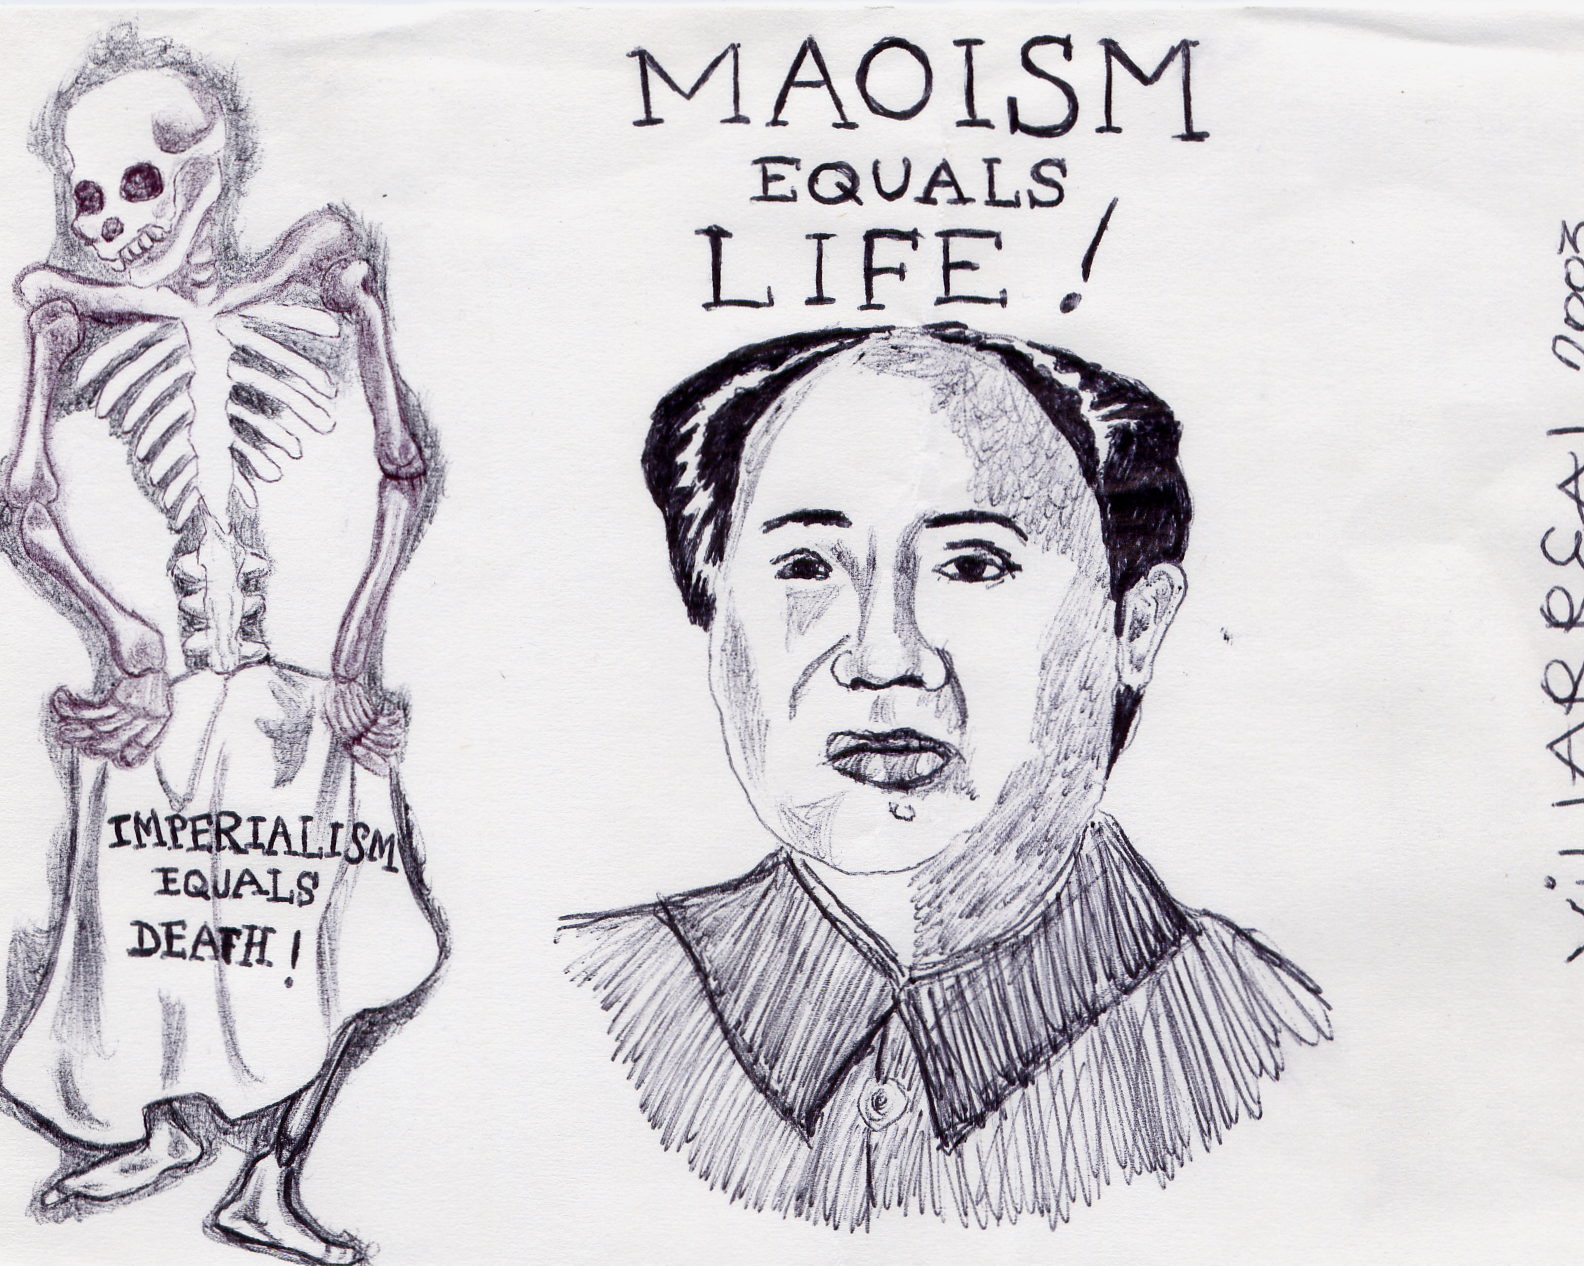 MAOISM
EQUALS
LIFE!
IMPERIALISM
EQUALS
DEATH!
VillARREAL 2003